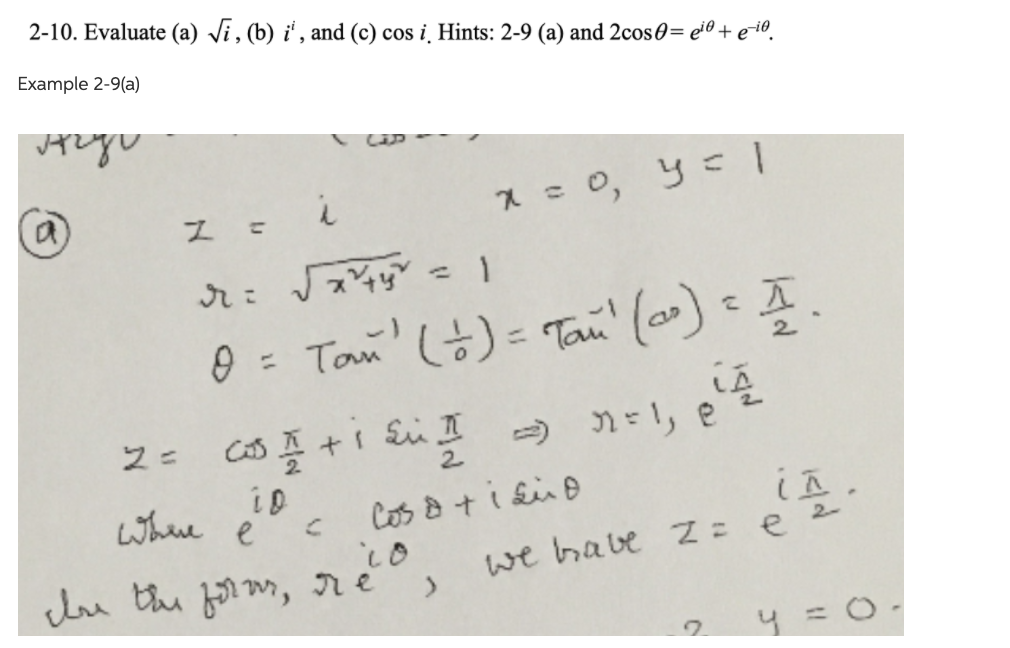 2-10. Evaluate (a) √i, (b) iⁱ, and (c) cos i. Hints: 2-9 (a) and 2cosθ= e^{iθ} + e^{-iθ}.
Example 2-9(a)
(a) z = i x = 0, y = 1
r = √x²+y² = 1
θ = Tan⁻¹ (1/0) = Tan⁻¹ (∞) = π/2.
z = cos π/2 + i Sin π/2 ⇒ r=1, e^{iπ/2}
Where e^{iθ} = Cos θ + i Sin θ
In the form, re^{iθ}, we have z = e^{iπ/2}.
y = 0.